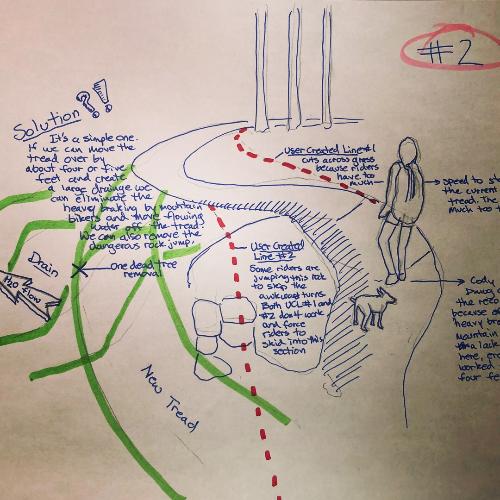 #2
Solution ?!
It's a simple one.
If we can move the
tread over by
about four or five
feet and create
a large drainage we
can eliminate the
heavy braking by mountain
bikers and move flowing
water off the tread.
We can also remove the
dangerous rock jump.
User Created Line #1
cuts across grass
because riders
have too
much
speed to st
the current
tread. The
much too
Drain
H2O Flow
One dead tree
removal
User Created
Line #2
Some riders are
jumping this rock
to skip the
awkward turns.
Both UCL #1 and
#2 don't work
and force
riders to
skid into this
section
Cody
the
because of
heavy br
Mountain
a lack
here,
worked
four fe
New Tread